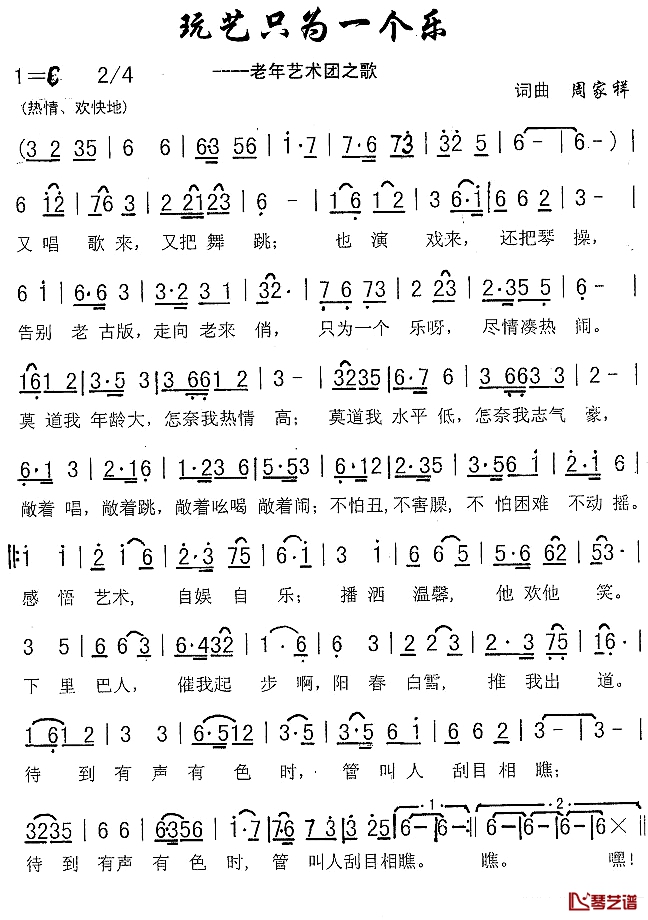 玩艺只为一个乐
1=C 2/4 ----老年艺术团之歌
词曲 周家祥
(热情、欢快地)
(3 2 35 | 6 6 | 63 56 | i·7 | 7·6 73 | 32 5 | 6- | 6-) |
6 i2 | 76 3 | 2 2123 | 6- | 16 12 | 3 6·i | 6 6 2 | 3- |
又唱 歌来, 又把舞 跳; 也 演 戏来, 还把琴 操,
6 i | 6·6 3 | 3·2 3 1 | 32· | 7 6 73 | 2 23 | 2·35 5 | 6- |
告别 老古版, 走向 老来 俏, 只为一个 乐呀, 尽情凑热 闹。
161 2 | 3·5 3 | 3 661 2 | 3- | 3235 | 6·7 6 | 3 663 | 2- |
莫道我 年龄大, 怎奈我热情 高; 莫道我 水平 低, 怎奈我志气 豪,
6·1 3 | 2·16 | 1·23 6 | 5·53 | 6·12 | 3·3 | 3·56 i | 2·i 6 |
敞着 唱, 敞着跳, 敞着吆喝 敞着闹; 不怕丑, 不害臊, 不 怕困难 不动 摇。
i i | 2 i 6 | 2·3 75 | 6·i | 3 3 | 6 6 5 | 5·6 62 | 53· |
感 悟 艺术, 自娱 自 乐; 播 洒 温馨, 他 欢他 笑。
3 5 | 6 6 3 | 6·432 | 1·6 | 6 3 | 2 2 3 | 2·3 75 | 16· |
下 里 巴人, 催我起 步啊, 阳 春 白雪, 推 我出 道。
1 61 2 | 3 3 | 6·512 | 3- | 3·5 | 6 i | 6 6 2 | 3- | 3- |
待 到 有 声 有 色 时, 管 叫 人 刮目相 瞧;
3235 | 6 6 | 6356 | i· | 76 73 | 3 25 | 6- | 6- :|| 6- | 6- | 6- | 6× ||
待 到 有声 有 色 时, 管 叫人刮目相瞧。 瞧。 嘿!
琴艺谱